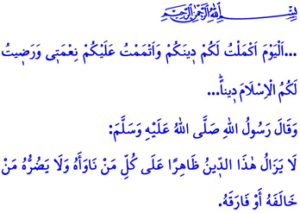 بِسْمِ اللهِ الرَّحْمٰنِ الرَّحِيمِ
...اَلْيَوْمَ اَكْمَلْتُ لَكُمْ دِينَكُمْ وَاَتْمَمْتُ عَلَيْكُمْ نِعْمَتِي وَرَضِيتُ
لَكُمُ الْاِسْلَامَ دِيناًۜ...
وَقَالَ رَسُولُ اللهِ صَلَّى اللهُ عَلَيْهِ وَسَلَّمَ:
لَا يَزَالُ هٰذَا الدِّينُ ظَاهِرًا عَلَى كُلِّ مَنْ نَاوَأَهُ وَلَا يَضُرُّهُ مَنْ
خَالَفَهُ أَوْ فَارَقَهُ.